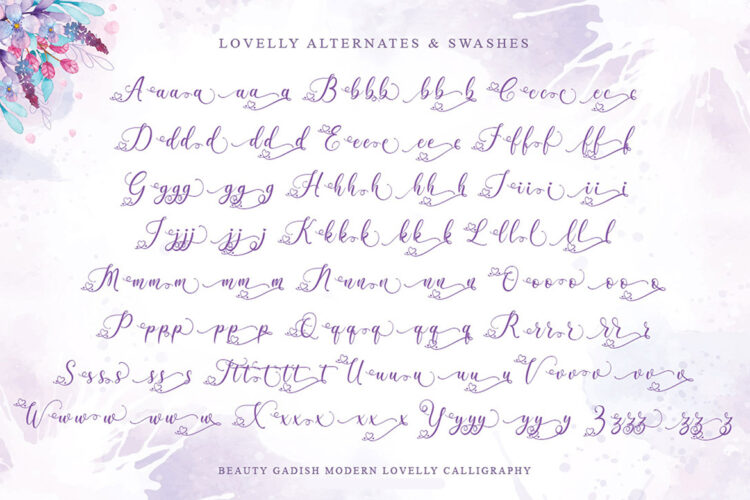 LOVELLY ALTERNATES & SWASHES
Aaaaa aa a Bbbbb bb b Ccccc cc c
Ddddd dd d Eeeee ee e Fffff ff f
Ggggg gg g Hhhhh hh h Iiiii ii i
Jjjjj jj j Kkkkk kk k Lllll ll l
Mmmmm mm m Nnnnn nn n Ooooo oo o
Ppppp pp p Qqqqq qq q Rrrrr rr r
Sssss ss s Ttttt tt t Uuuuu uu u Vvvvv vv v
Wwwww ww w Xxxxx xx x Yyyyy yy y Zzzzz zz z
BEAUTY GADISH MODERN LOVELLY CALLIGRAPHY